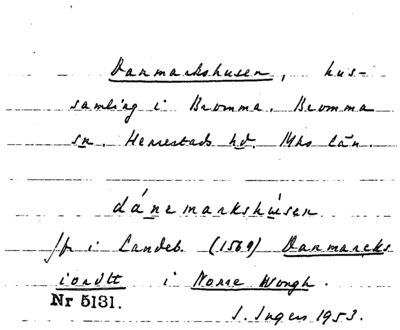 Danmarkshusen, hus-
samling i Bromma. Bromma
sn. Herrestads hd. Mhs län.
dánemarkshùsen
Jfr i Landeb. (1569) Danmarcks
iordtt i Norre Wongh.
Nr 5131.
I. Ingers 1953.